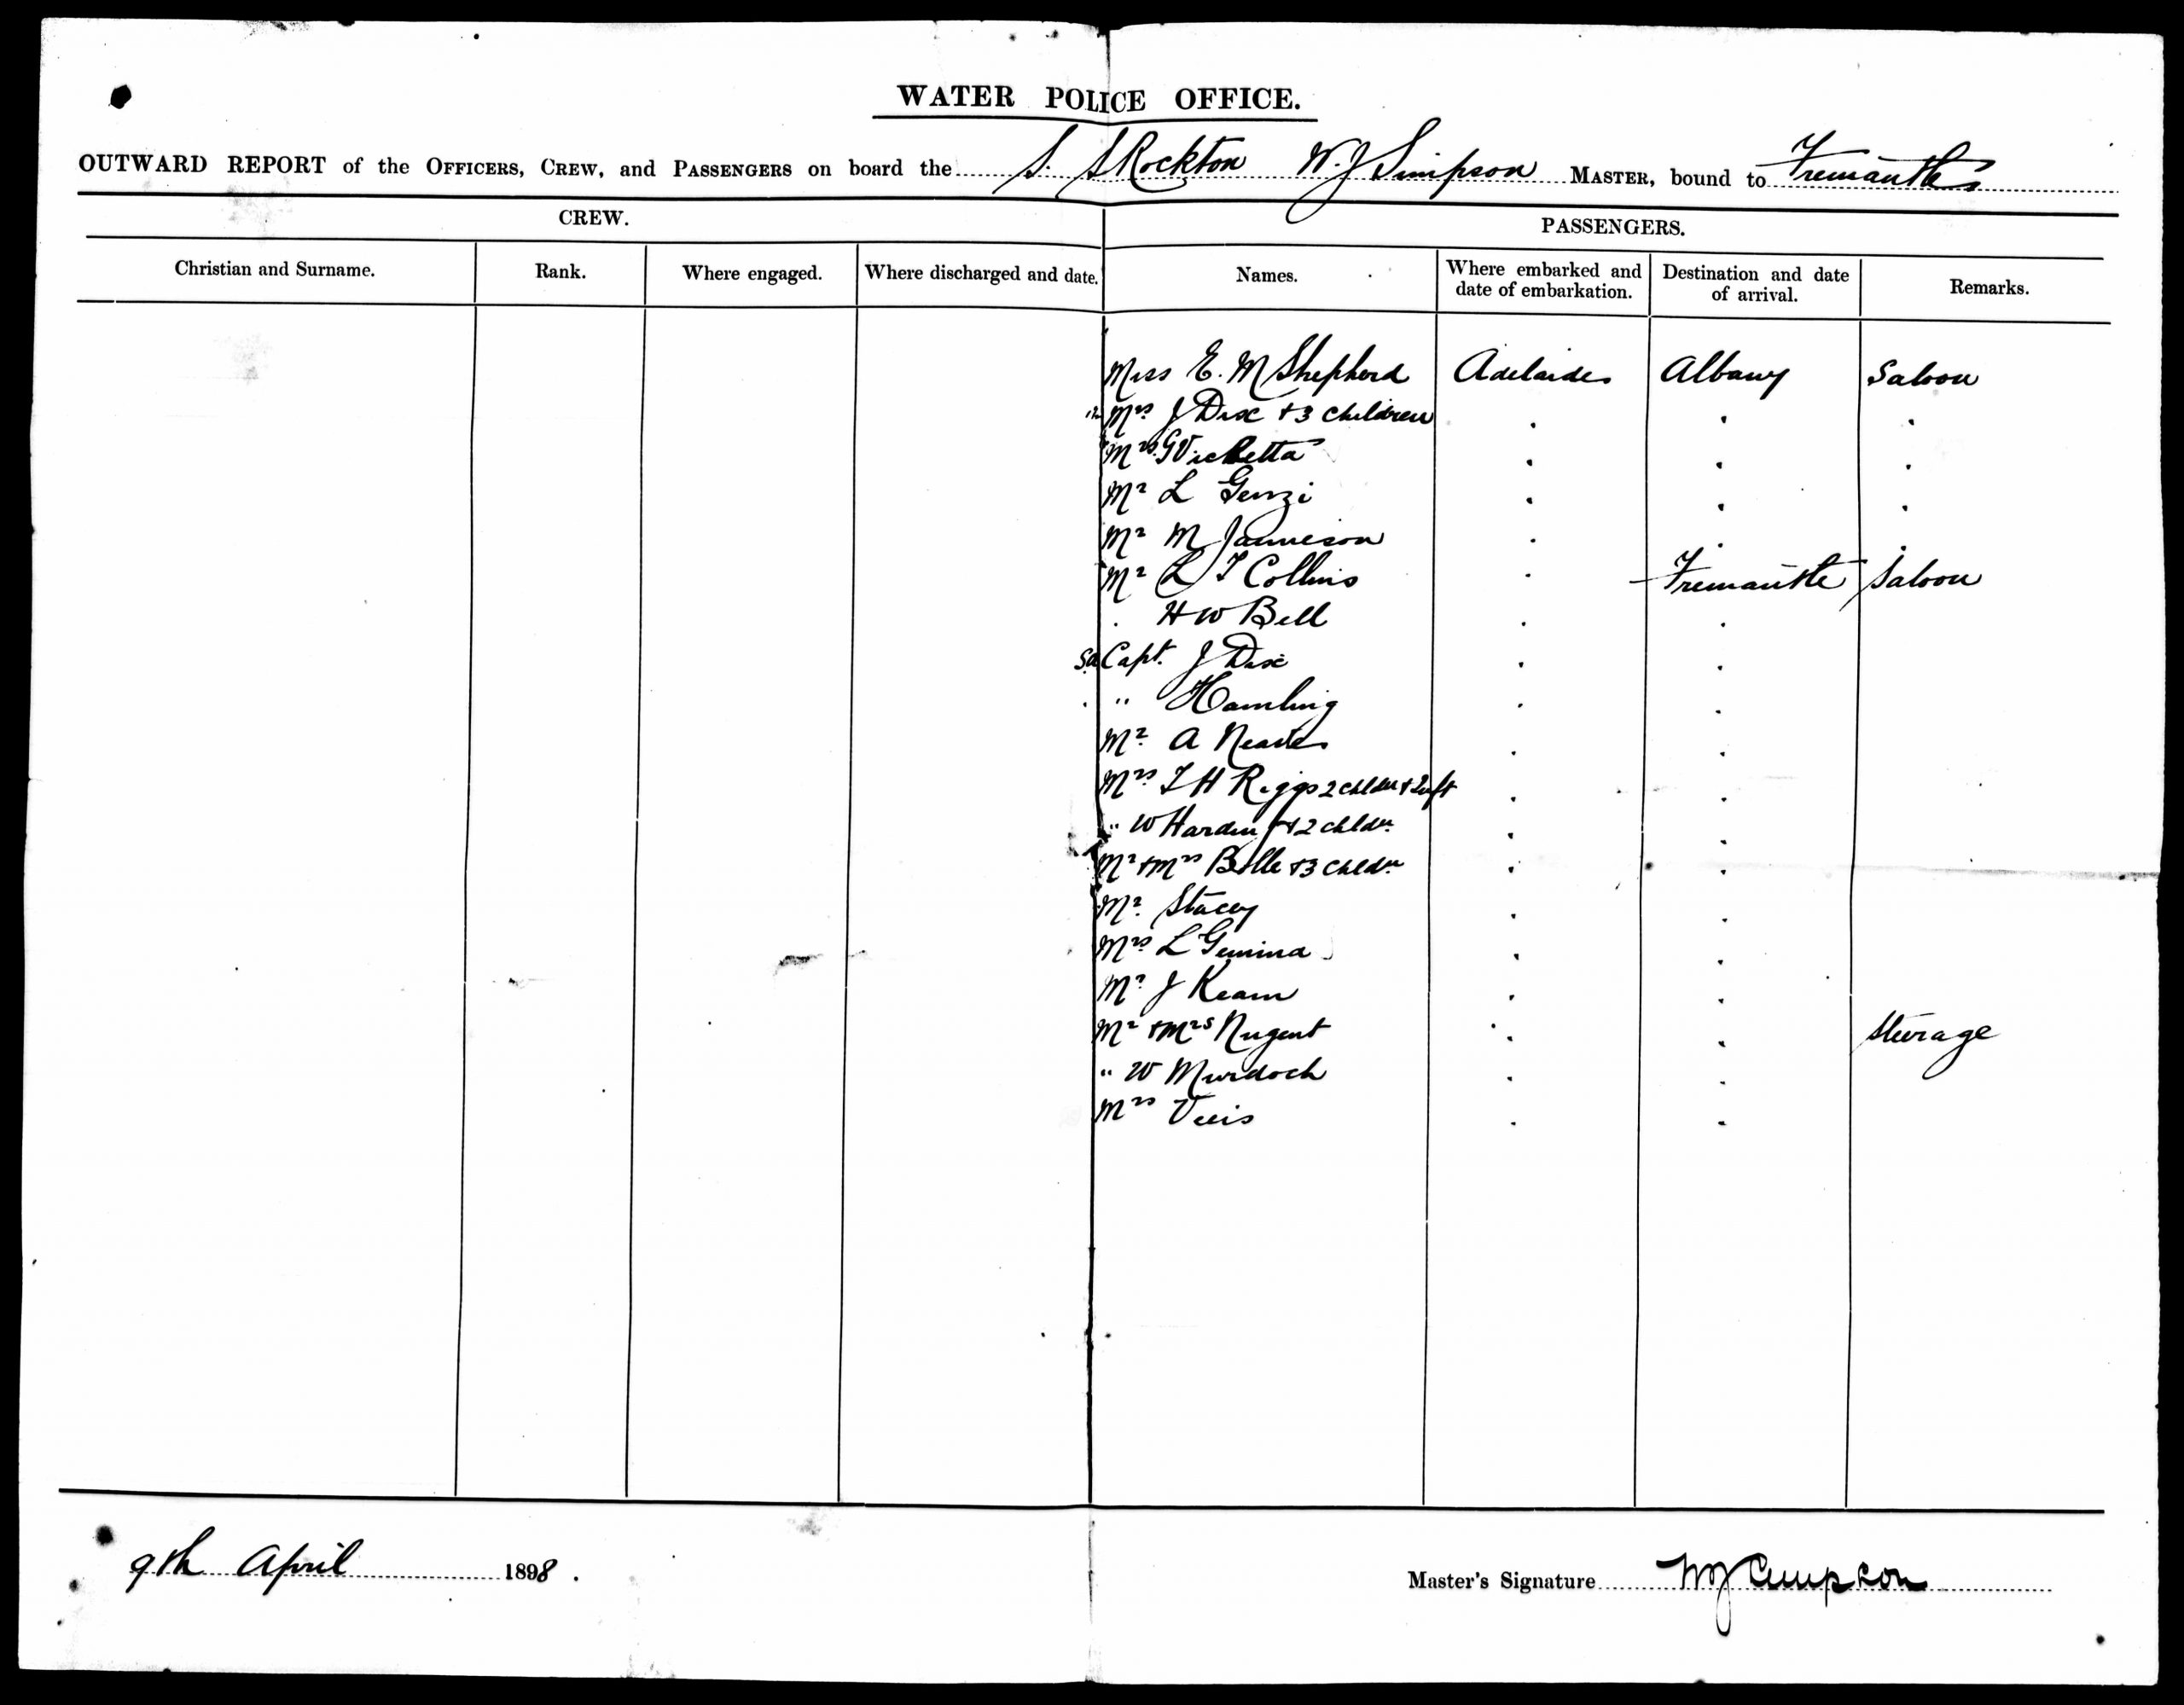 WATER POLICE OFFICE.
OUTWARD REPORT of the OFFICERS, CREW, and PASSENGERS on board the S. S Rockton W. J Simpson MASTER, bound to Fremantle
CREW. PASSENGERS.
Christian and Surname. Rank. Where engaged. Where discharged and date. Names. Where embarked and date of embarkation. Destination and date of arrival. Remarks.
Miss E. M Shepherd Adelaide Albany Saloon
Mrs J Dix + 3 children . . .
Mrs . . .
Mr L . . .
Mr M Jamieson . . .
Mr L T Collins . Fremantle Saloon
. H W Bell . .
Capt. J Dix . .
" Hamling . .
Mr. A . .
Mrs T H Riggs 2 childn + Inft . .
" W Harden + 2 childn . .
Mr + Mrs Bolle + 3 childn . .
Mr. Stacey . .
Mrs L Gemina . .
Mr J Keam . .
Mr + Mrs Nugent . . Steerage
" W Murdoch . .
Mrs . .
9th April 1898.
Master's Signature W J Simpson